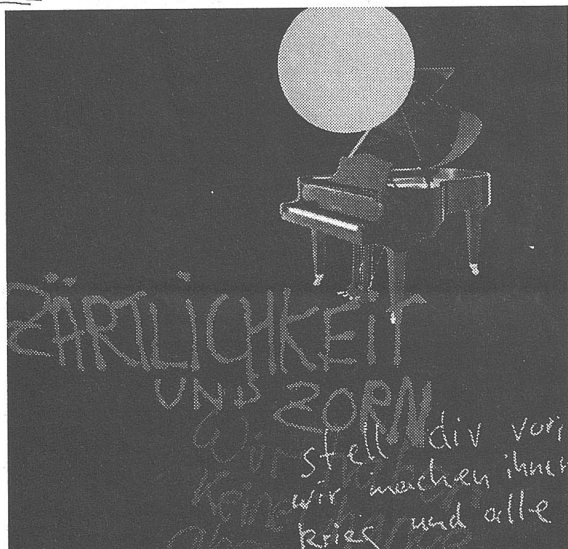 ZÄRTLICHKEIT
UND ZORN
Wir
stell dir vor,
wir machen ihnen
keine
krieg und alle